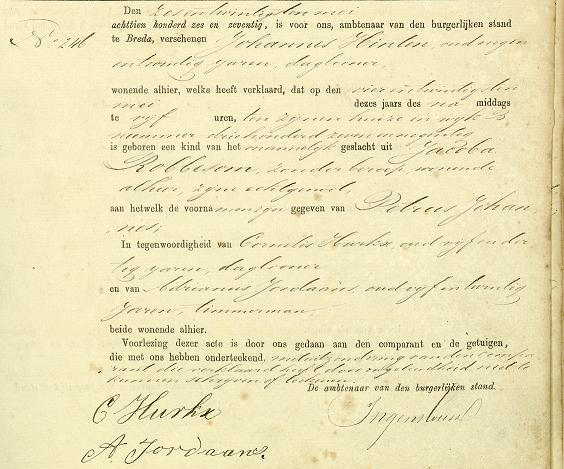 Den zesentwintigsten mei
achttien honderd zes en zeventig, is voor ons, ambtenaar van den burgerlijken stand
No. 246
te Breda, verschenen Johannes Hinten, oud negen
entwintig jaren, daglooner,
wonende alhier, welke heeft verklaard, dat op den vierentwintigsten
mei dezes jaars des na middags
te vijf uren, ten zijnen huize in wijk B
nummer driehonderd zevenennegentig
is geboren een kind van het mannelijk geslacht uit Jacoba
Robbeson, zonder beroep, wonende
alhier, zijne echtgenoot,
aan hetwelk de voorna men zijn gegeven van Petrus Johan
nes;
In tegenwoordigheid van Cornelis Hurkx, oud vijfender
tig jaren, daglooner
en van Adrianus Jordaans, oud vijfentwintig
jaren, timmerman,
beide wonende alhier.
Voorlezing dezer acte is door ons gedaan aan den comparant en de getuigen,
die met ons hebben onderteekend, met uitzondering van den compa
rant die verklaard heeft door ongeleerdheid niet te
kunnen schrijven of teekenen.
De ambtenaar van den burgerlijken stand.
C Hurkx
A. Jordaans.